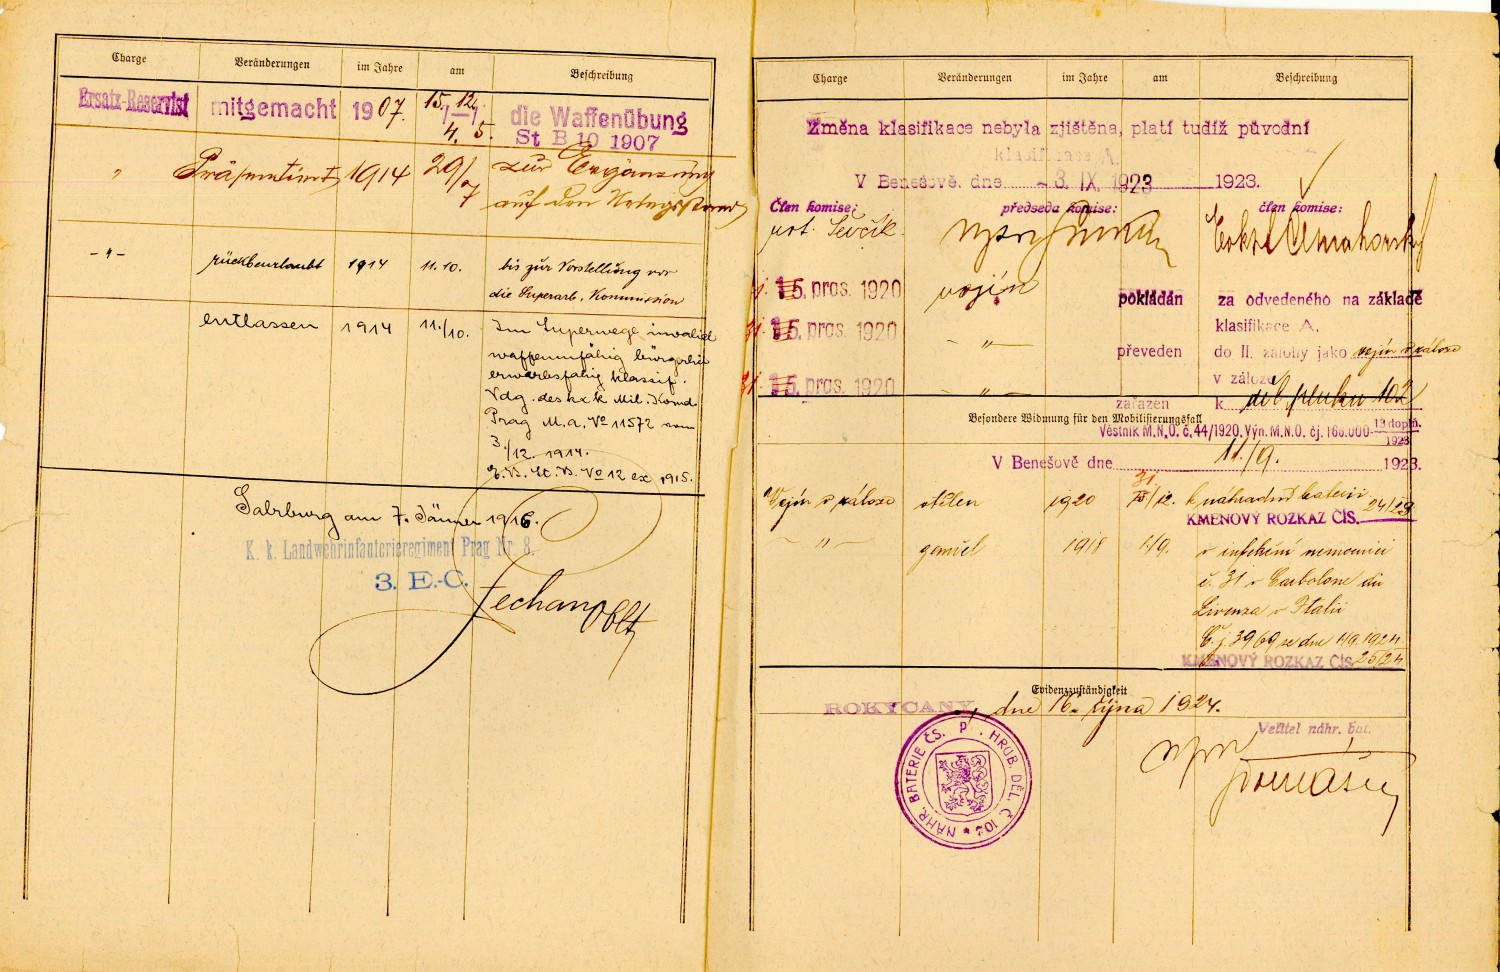 Charge Veränderungen im Jahre am Beschreibung
Ersatz-Reservist mitgemacht 1907. 15./4. 12./5. die Waffenübung
St B 10 1907
" Präsentiert 1914 29/7 zur Ergänzung
auf den Kriegsstand
-"- rückbeurlaubt 1914 11.10. bis zur Vorstellung vor
die Superarb. Kommission
entlassen 1914 11./10. Im Superwege invalid
waffenunfähig bürgerlich
erwerbsfähig klassif.
Vdg. des k k Mil. Komd
Prag M.a. No 11572 vom
3./12. 1914.
No 12 ex 1915.
Salzburg am 7. Jänner 1916.
K. k. Landwehrinfanterieregiment Prag Nr. 8.
3. E.-C.
Oblt
Charge Veränderungen im Jahre am Beschreibung
Změna klasifikace nebyla zjištěna, platí tudíž původní
klasifikace A.
V Benešově, dne - 3. IX. 1923 1923.
Člen komise: předseda komise: člen komise:
Ševčík
15. pros. 1920 vojín pokládán za odvedeného na základě
klasifikace A.
31. 15. pros. 1920 -"- převeden do II. zálohy jako vojín v záloze
v záloze
31. 15. pros. 1920 -"- zařazen k děl. pluku 102
Besondere Widmung für den Mobilisierungsfall
Věstník M.N.O. č. 44/1920. Výn. M.N.O. čj. 166.000 13 doplň. 1923
V Benešově dne 11/9. 1923.
Vojín v záloze vtělen 1920 31 15/12. k náhradní baterii
KMENOVÝ ROZKAZ ČÍS. 24/23
-"- zemřel 1918 1/9. v infekční nemocnici
č. 31 v Carbolone di
Livenza v Italii
Č.j. 3969 ze dne 1/9. 1924.
KMENOVÝ ROZKAZ ČÍS. 25/24
Evidenzzuständigkeit
ROKYCANY, dne 16. října 1924.
Velitel náhr. bat.
NÁHR. BATERIE ČS. P. HRUB. DĚL. Č. 102 *